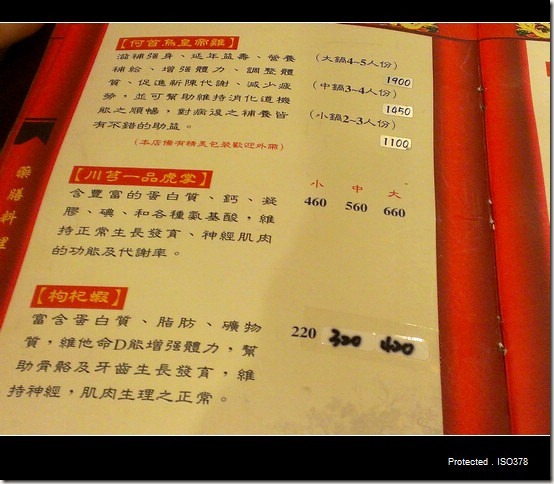 【何首烏皇帝雞】
滋補強身、延年益壽、營養
補給、增強體力、調整體
質、促進新陳代謝、減少疲
勞,並可幫助維持消化道機
能之順暢,對病後之補養皆
有不錯的助益。
(本店備有精美包裝歡迎外帶)
(大鍋4~5人份)
1900
(中鍋3~4人份)
1450
(小鍋2~3人份)
1100
【川芎一品虎掌】
小 中 大
460 560 660
含豐富的蛋白質、鈣、凝
膠、碘、和各種氨基酸,維
持正常生長發育、神經肌肉
的功能及代謝率。
【枸杞蝦】
220 320 420
富含蛋白質、脂肪、礦物
質,維他命D能增強體力,幫
助骨骼及牙齒生長發育,維
持神經,肌肉生理之正常。
藥膳料理
Protected . ISO378